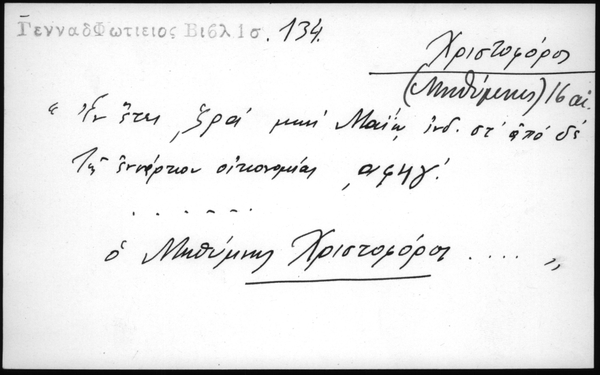 ΓενναδΦωτιειος Βιβλ 1σ. 134.
Χριστοφόρος
(Μηθύμνης) 16 αἰ.
“ Ἐν ἔτει ͵ζραʹ μηνὶ Μαΐῳ ἰνδ. στʹ ἀπὸ δὲ
τῆς ἐνσάρκου οἰκονομίας ͵αφϟγʹ.
. . . . . .
ὁ Μηθύμνης Χριστοφόρος . . . . ”